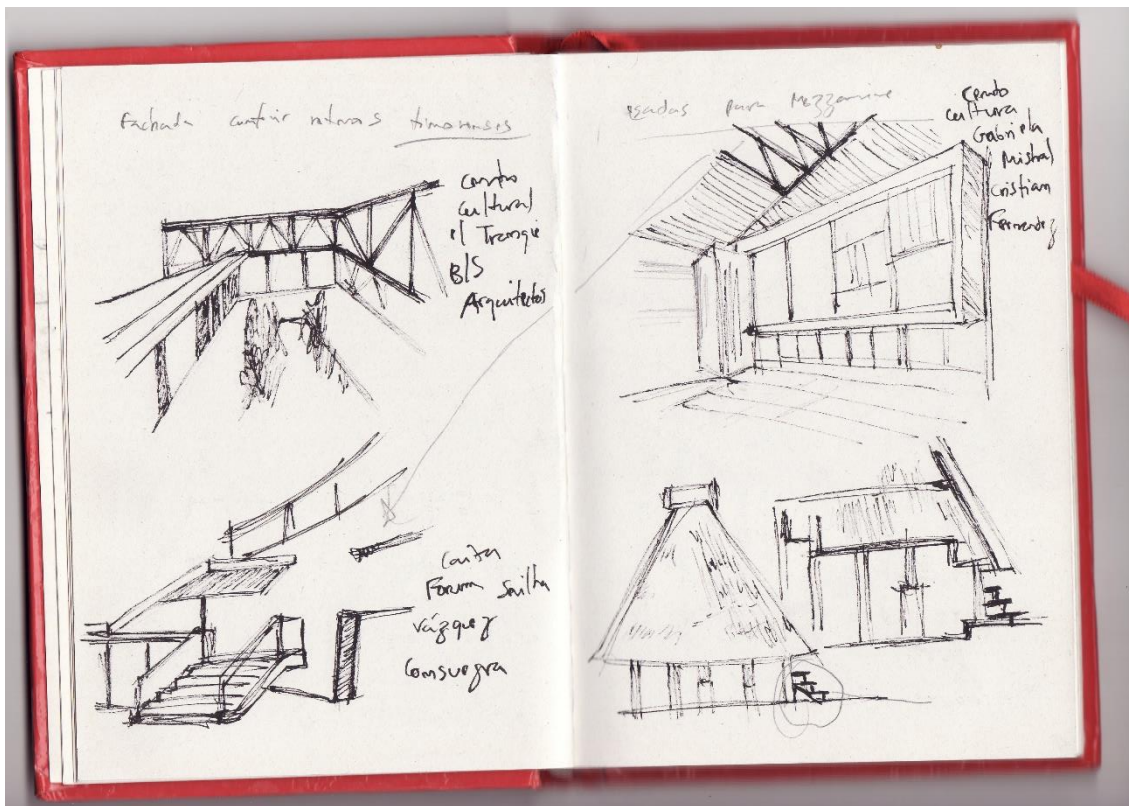 Fachada conferir ruturas timorenses
Centro
Cultural
el Tranque
B/S
Arquitectos
Caixa
Forum Sevilha
Vázquez
Consuegra
para Mezzanine
Centro
cultura
Gabriela
Mistral
Cristian
Fernandez